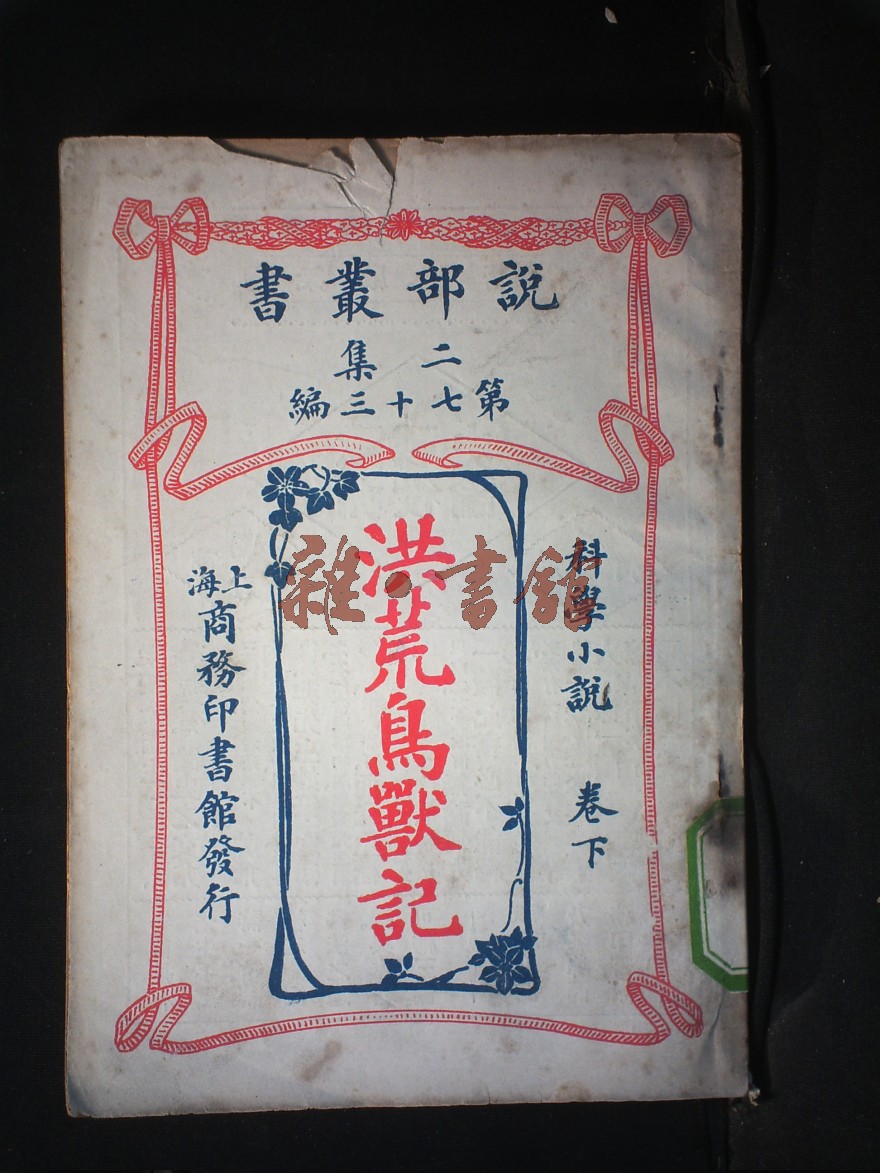 說部叢書
二集
第七十三編
科學小說 卷下
洪荒鳥獸記
上海商務印書館發行
雜·書館